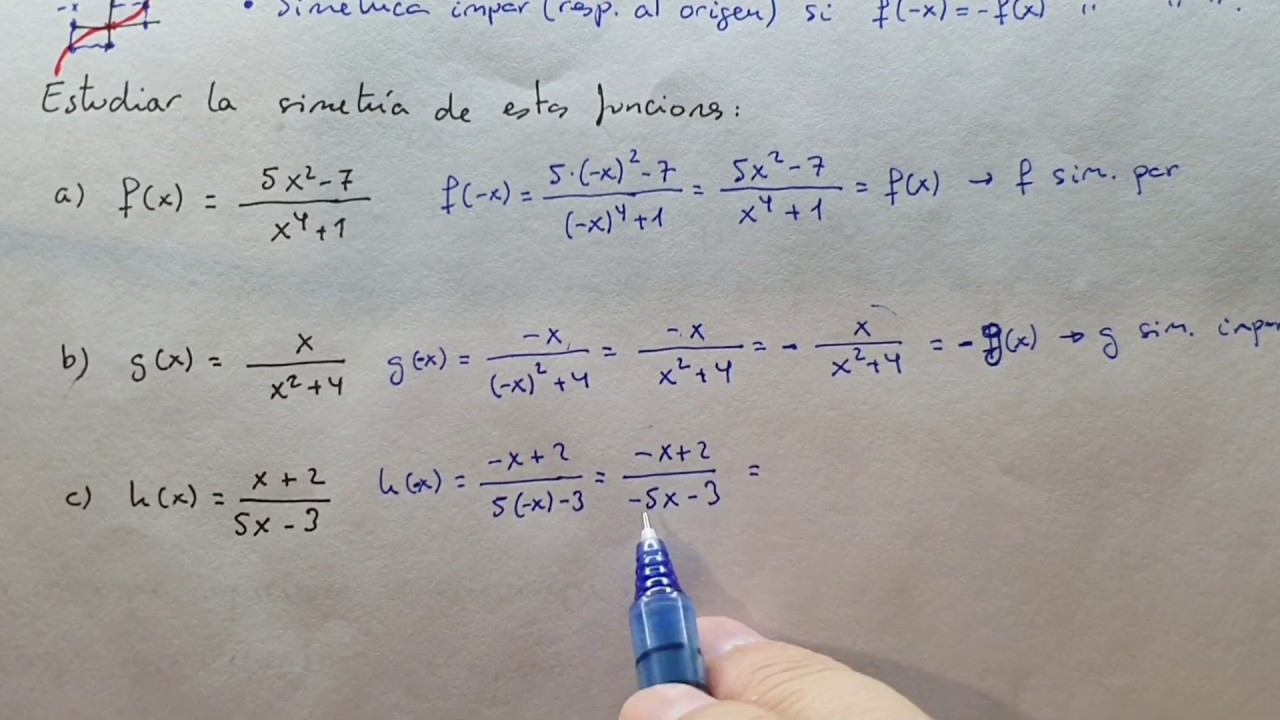 -x
• Simetrica impar (resp. al origen) si f(-x) = -f(x) " " ".
Estudiar la simetría de estas funciones:
a) f(x) = (5x²-7)/(x⁴+1) f(-x) = (5·(-x)²-7)/((-x)⁴+1) = (5x²-7)/(x⁴+1) = f(x) → f sim. par
b) g(x) = x/(x²+4) g(-x) = -x/((-x)²+4) = -x/(x²+4) = - x/(x²+4) = -g(x) → g sim. impar
c) h(x) = (x+2)/(5x-3) h(-x) = (-x+2)/(5(-x)-3) = (-x+2)/(-5x-3) =